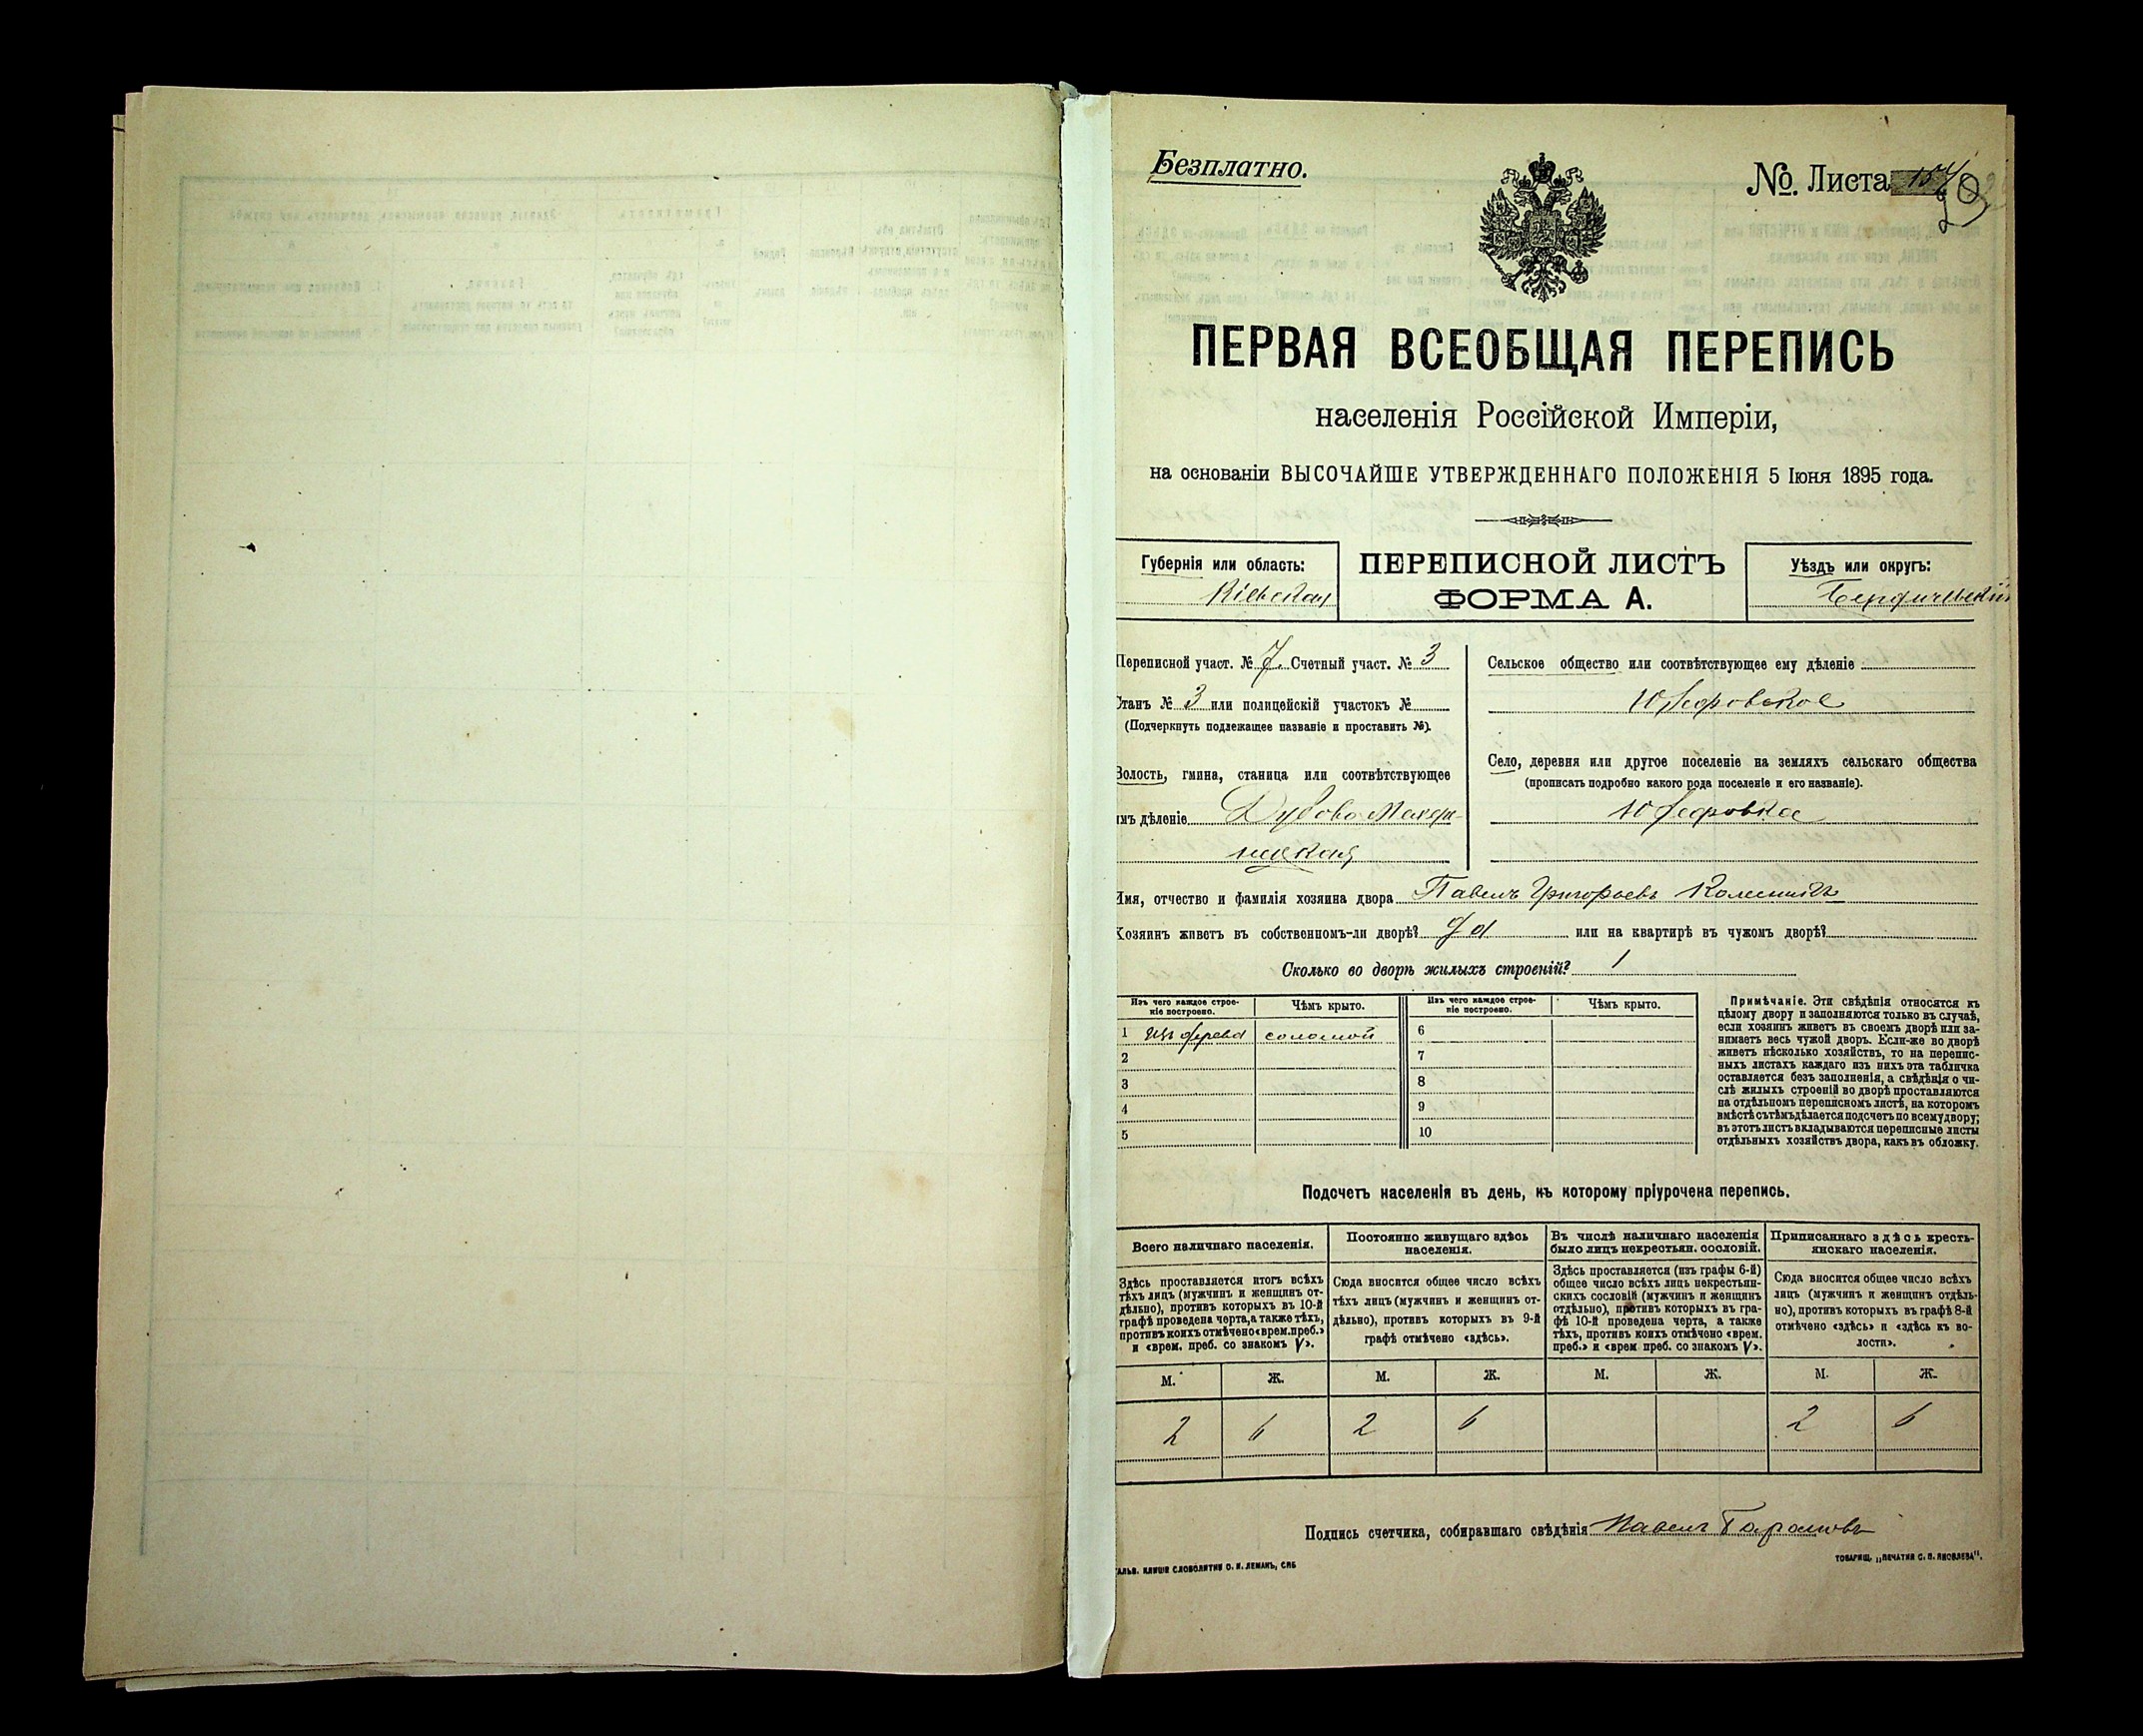 Безплатно.
№. Листа
ПЕРВАЯ ВСЕОБЩАЯ ПЕРЕПИСЬ
населенія Россійской Имперіи,
на основаніи ВЫСОЧАЙШЕ УТВЕРЖДЕННАГО ПОЛОЖЕНІЯ 5 Іюня 1895 года.
Губернія или область:
Кіевская
ПЕРЕПИСНОЙ ЛИСТЪ
ФОРМА А.
Уѣздъ или округъ:
Бердичевскій
Переписной участ. № 7. Счетный участ. № 3
Станъ № 3 или полицейскій участокъ №
(Подчеркнуть подлежащее названіе и проставить №).
Волость, гмина, станица или соотвѣтствующее
имъ дѣленіе Дубово-Махари-
нецкая
Сельское общество или соотвѣтствующее ему дѣленіе
Юзефовское
Село, деревня или другое поселеніе на земляхъ сельскаго общества
(прописать подробно какого рода поселеніе и его названіе).
Юзефовка
Имя, отчество и фамилія хозяина двора Павелъ Григорьевъ Колесникъ
Хозяинъ живетъ въ собственномъ-ли дворѣ? Да или на квартирѣ въ чужомъ дворѣ?
Сколько во дворѣ жилыхъ строеній? 1
Изъ чего каждое строе-
ніе построено.
Чѣмъ крыто.
Изъ чего каждое строе-
ніе построено.
Чѣмъ крыто.
1 изъ дерева соломой 6
2 7
3 8
4 9
5 10
Примѣчаніе. Эти свѣдѣнія относятся къ
цѣлому двору и заполняются только въ случаѣ,
если хозяинъ живетъ въ своемъ дворѣ или за-
нимаетъ весь чужой дворъ. Если-же во дворѣ
живетъ нѣсколько хозяйствъ, то на перепис-
ныхъ листахъ каждаго изъ нихъ эта табличка
оставляется безъ заполненія, а свѣдѣнія о чи-
слѣ жилыхъ строеній во дворѣ проставляются
на отдѣльномъ переписномъ листѣ, на которомъ
вмѣстѣ съ тѣмъ дѣлается подсчетъ по всему двору;
въ этотъ листъ вкладываются переписные листы
отдѣльныхъ хозяйствъ двора, какъ въ обложку.
Подсчетъ населенія въ день, къ которому пріурочена перепись.
Всего наличнаго населенія.
Здѣсь проставляется итогъ всѣхъ
тѣхъ лицъ (мужчинъ и женщинъ от-
дѣльно), противъ которыхъ въ 10-й
графѣ проведена черта, а также тѣхъ,
противъ коихъ отмѣчено «врем. преб.»
и «врем. преб. со знакомъ V».
Постоянно живущаго здѣсь
населенія.
Сюда вносится общее число всѣхъ
тѣхъ лицъ (мужчинъ и женщинъ от-
дѣльно), противъ которыхъ въ 9-й
графѣ отмѣчено «здѣсь».
Въ числѣ наличнаго населенія
было лицъ некрестьян. сословій.
Здѣсь проставляется (изъ графы 6-й)
общее число всѣхъ лицъ некрестьян-
скихъ сословій (мужчинъ и женщинъ
отдѣльно), противъ которыхъ въ гра-
фѣ 10-й проведена черта, а также
тѣхъ, противъ коихъ отмѣчено «врем.
преб.» и «врем преб. со знакомъ V».
Приписаннаго здѣсь кресть-
янскаго населенія.
Сюда вносится общее число всѣхъ
лицъ (мужчинъ и женщинъ отдѣль-
но), противъ которыхъ въ графѣ 8-й
отмѣчено «здѣсь» и «здѣсь къ во-
лости».
М. Ж. М. Ж. М. Ж. М. Ж.
2 6 2 6 2 6
Подпись счетчика, собиравшаго свѣдѣнія Павелъ
ГАЛЬВ. КЛИШЕ СЛОВОЛИТНИ О. И. ЛЕМАНЪ, СПБ
ТОВАРИЩ. „ПЕЧАТНЯ С. П. ЯКОВЛЕВА".